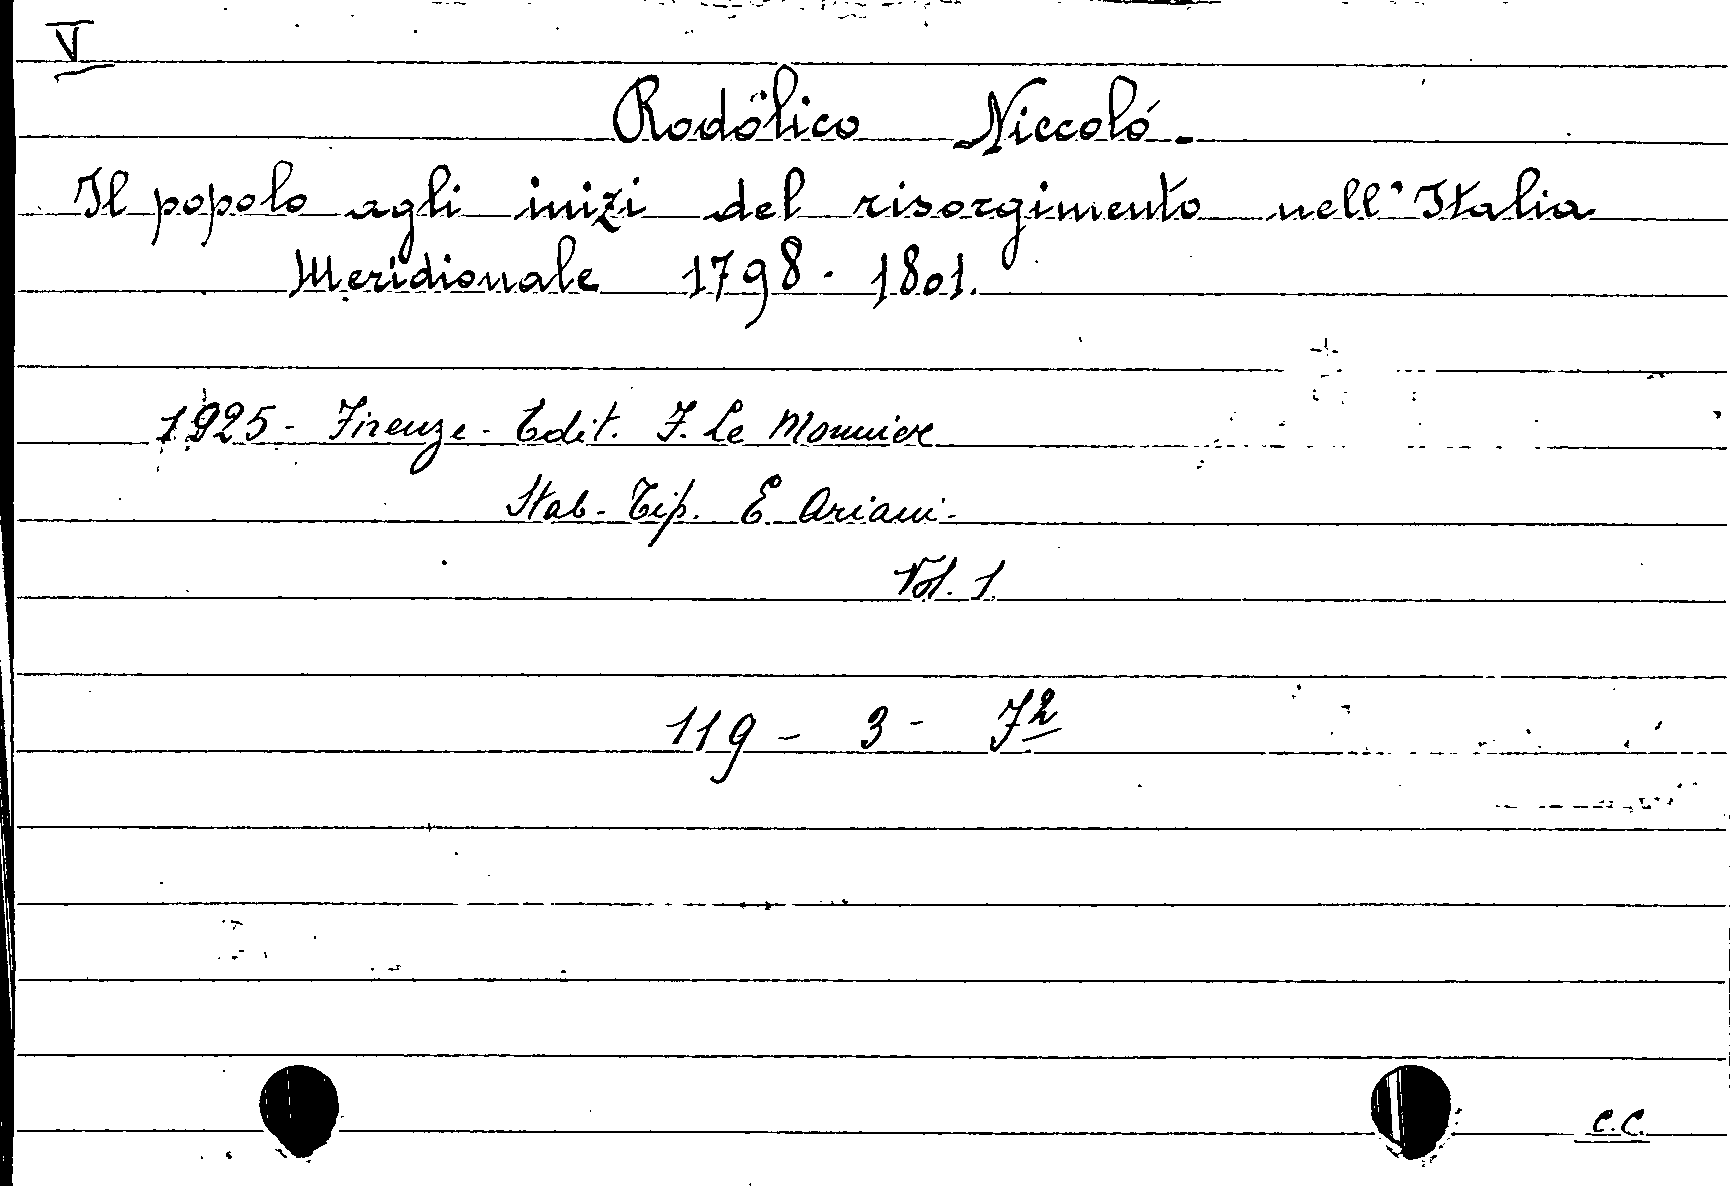 V
Rodólico Niccoló.
Il popolo agli inizi del risorgimento nell'Italia
Meridionale 1798 - 1801.
1925 - Firenze - Edit. F. Le Monnier
Stab - Tip. E Ariani -
Vol. 1
119 - 3 - F2
C.C.